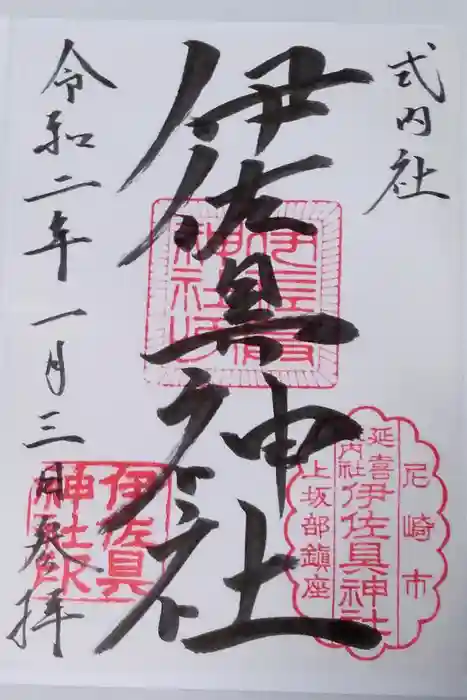 式内社
伊佐具神社
令和二年一月三日参拝
伊佐具
神社印
尼崎市
延喜
式内社
伊佐具神社
上坂部鎮座